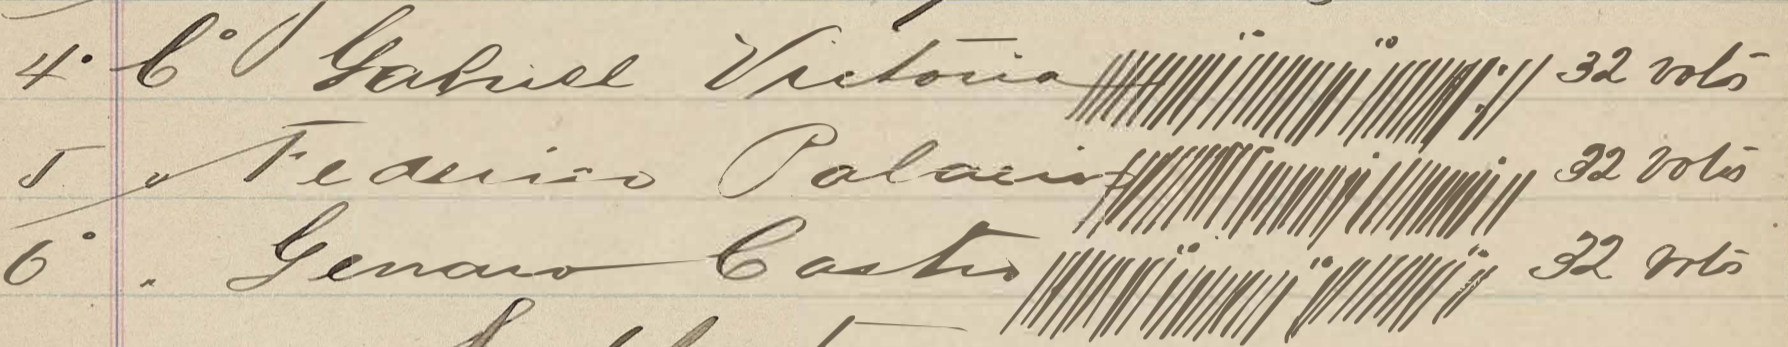 4° C° Gabriel Victoria 32 vots
5 " Federico Palacios 32 vots
6° " Genaro Castro 32 vots